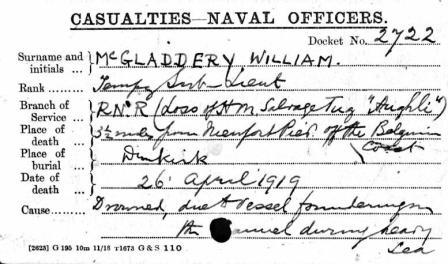 CASUALTIES—NAVAL OFFICERS.
Docket No. 2722
Surname and initials ... McGLADDERY, WILLIAM.
Rank ... Tempy Sub-Lieut
Branch of Service ... RNR (Loss of HM Salvage Tug "Hughli")
Place of death ... 3½ miles from Nieuport Pier off the Belgium Coast
Place of burial ... Dunkirk
Date of death ... 26 April 1919
Cause ... Drowned, due to vessel foundering in
the Channel during heavy
Sea
[2623] G 195 10m 11/18 T1673 G & S 110